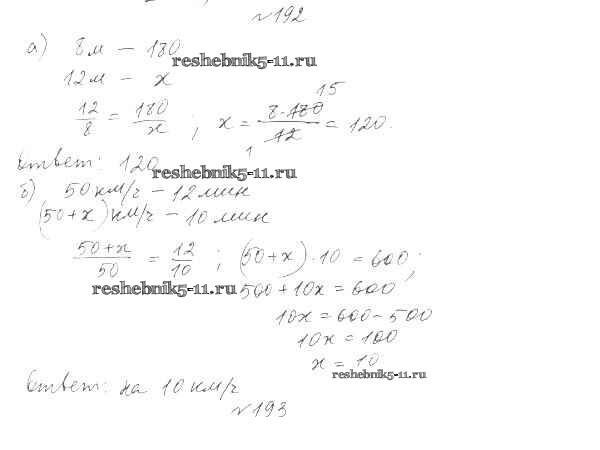 №192
а) 8м – 180
reshebnik5-11.ru
12м – x
12/8 = 180/x ; x = 8·180/12 = 120.
15
1
Ответ: 120
reshebnik5-11.ru
б) 50 км/ч – 12 мин
(50+x) км/ч – 10 мин
50+x/50 = 12/10 ; (50+x)·10 = 600;
reshebnik5-11.ru
500 + 10x = 600
10x = 600 – 500
10x = 100
x = 10
reshebnik5-11.ru
Ответ: на 10 км/ч
№193